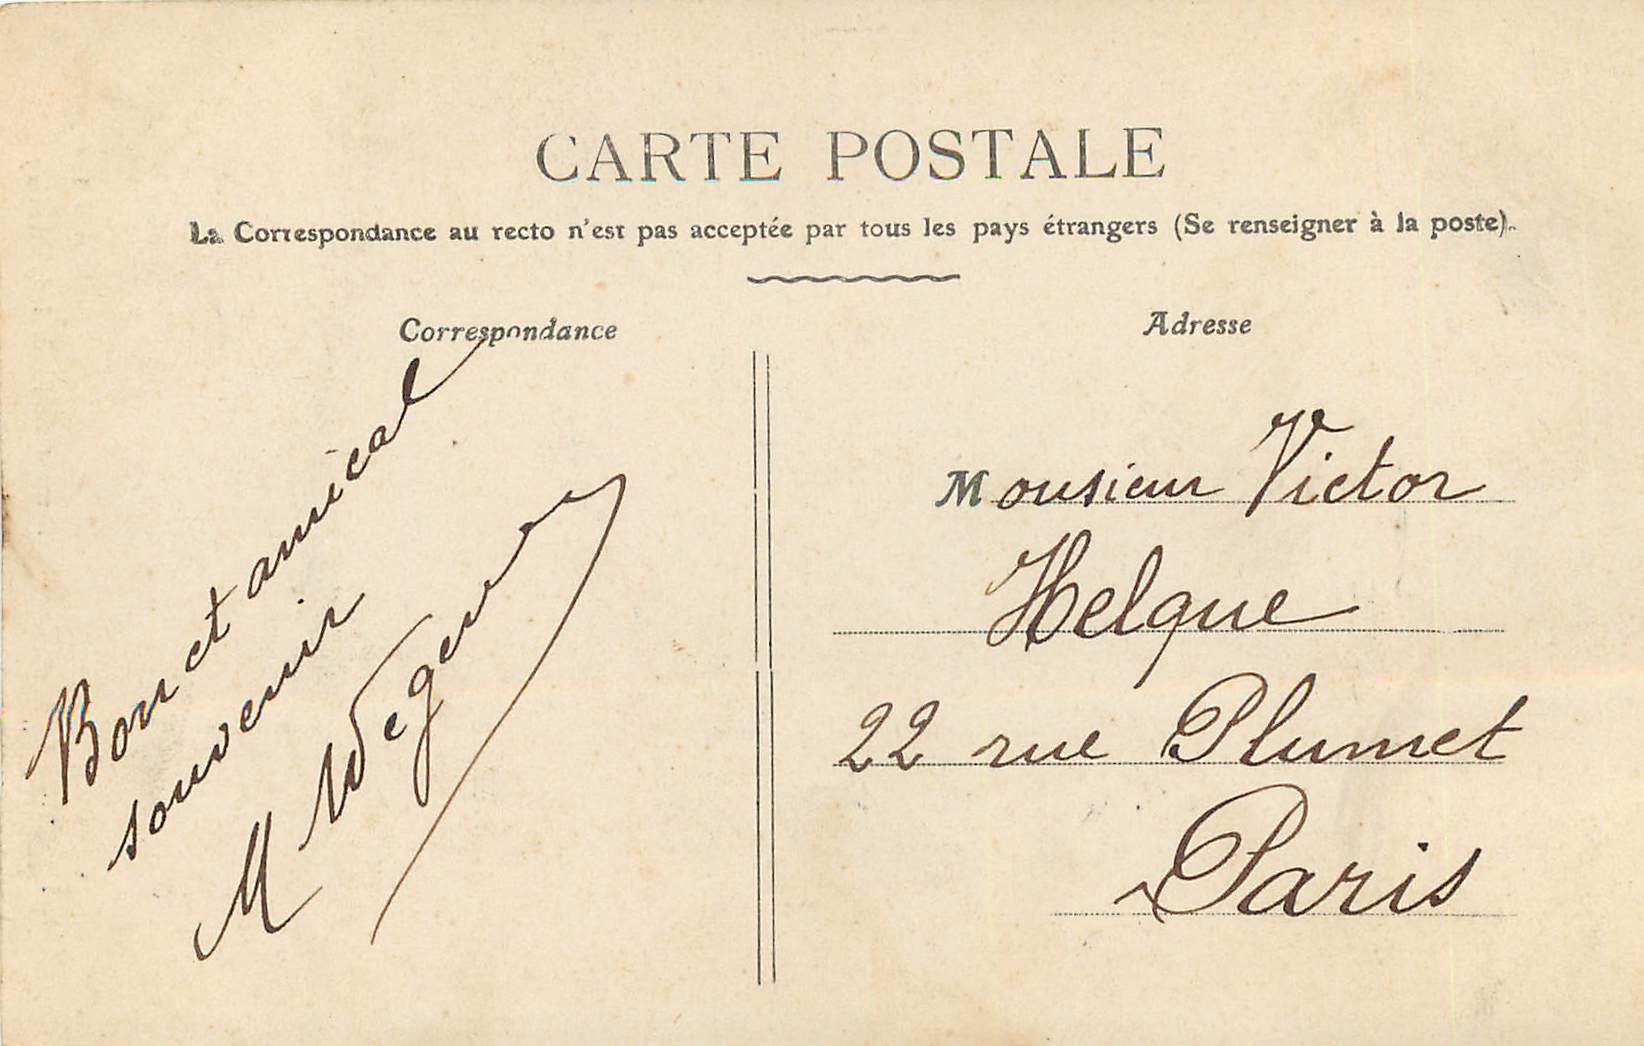 CARTE POSTALE
La Correspondance au recto n'est pas acceptée par tous les pays étrangers (Se renseigner à la poste).
Correspondance
Bon et amical
souvenir
M Wegener
Adresse
Monsieur Victor
Helque
22 rue Plumet
Paris